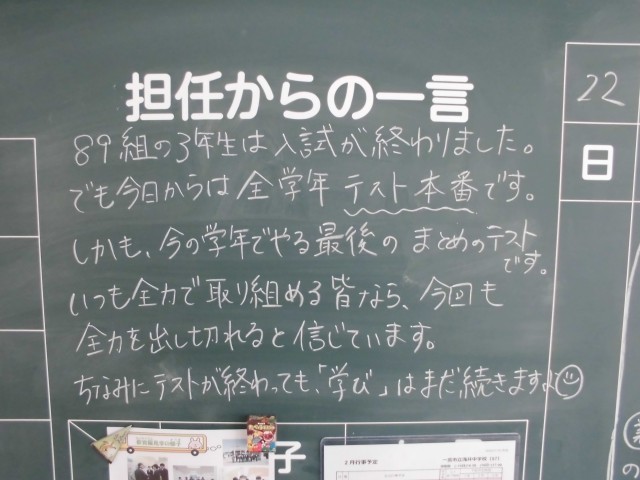 担任からの一言
22
日
89組の3年生は入試が終わりました。
でも今日からは全学年テスト本番です。
しかも、今の学年でやる最後のまとめのテスト
です。
いつも全力で取り組める皆なら、今回も
全力を出し切れると信じています。
ちなみにテストが終わっても、「学び」はまだ続きますよ
子
2月行事予定
の